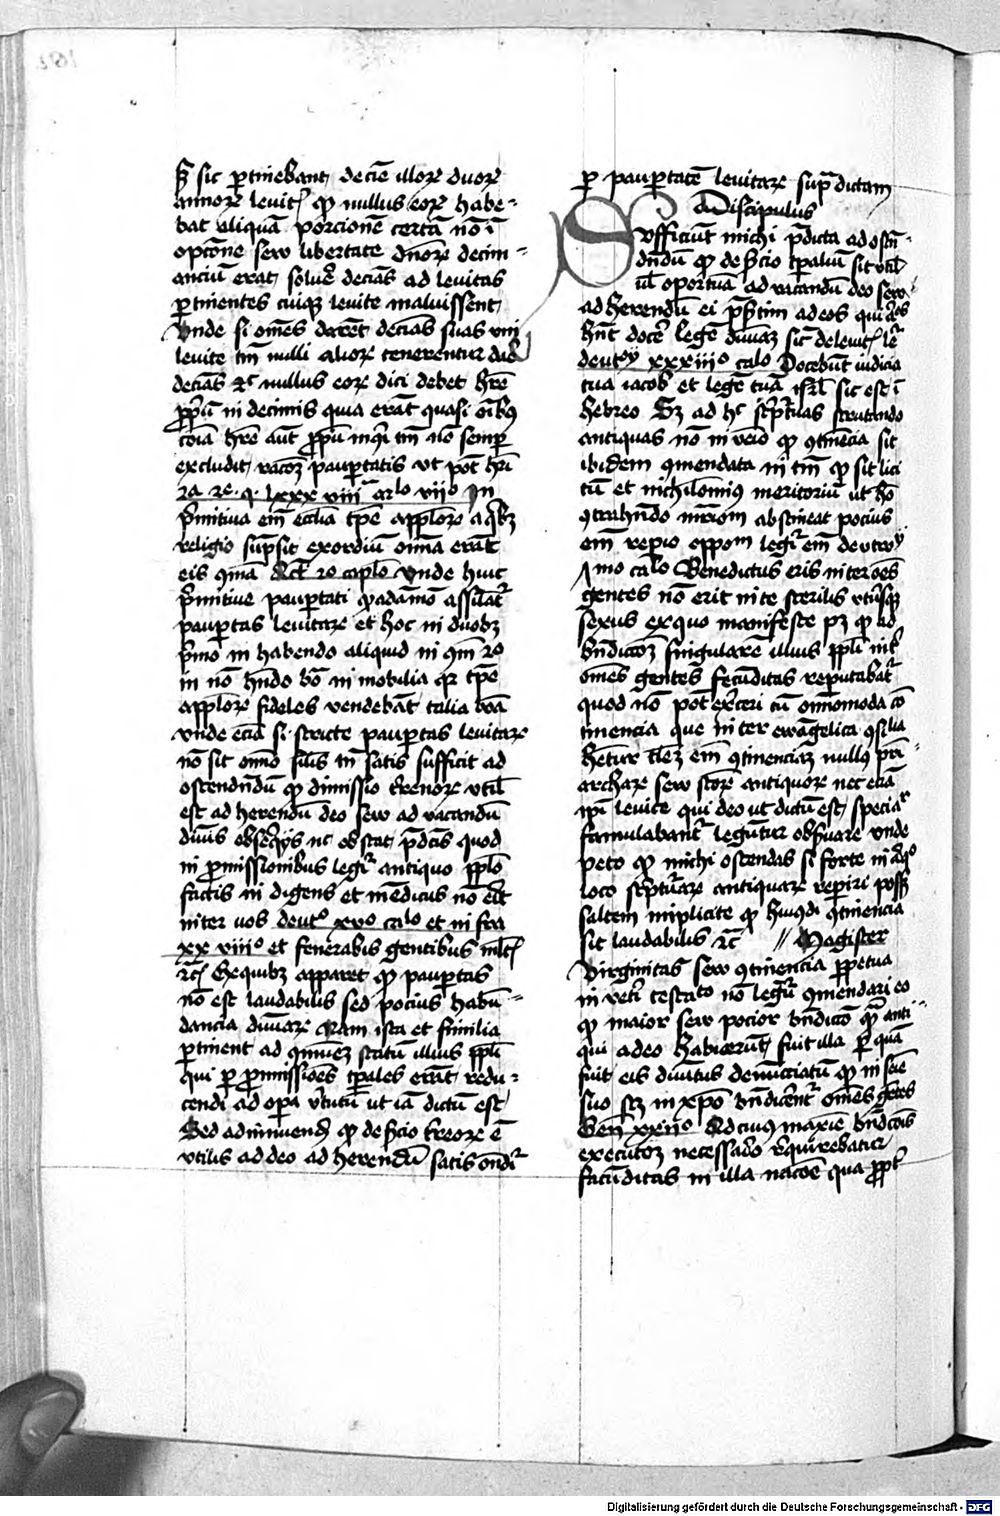 sic ꝑtinebant decīe illoꝝ duoꝝ
annoꝝ leuit ꝙ nullus eoꝝ habe-
bat aliquā porcionē certā nō ī
opcōne seu libertate dnōꝝ decim-
ancium erat soluē deciās ad leuitas
ꝑtinentes cuiꝗ leuite maluissent
Vnde si om̄es darēt decias suas vni
leuite tm̄ nulli alioꝝ tenerentur
decias ⁊c̄ nullus eoꝝ dici debet hr̄e
ꝓpū in decimis quia erāt quasi oībꝰ
cōia hr̄e aūt ꝓpū tm̄ nō semꝑ
excludit racōꝫ pauꝑtatis vt pōt
q. lxxxviii ar̄lo viijo In
p̄mitiua em̄ ecclīa tꝑe apploꝝ a qbꝫ
religio sup̄sit exordiū om̄ia erāt
eis cōia Act 2o caplo Vnde huic
p̄mitiue pauꝑtati assilat᷑
pauꝑtas leuitaꝝ et hoc in duobꝫ
p̄mo in habendo aliquid in 2o
in nō hn̄do bō in mobilia qꝛ tꝑe
apploꝝ fideles vendebāt talia bōa
vnde eciā si stricte pauꝑtas leuitaꝝ
nō sit om̄o silis tn̄ satis sufficit ad
ostendn̄dū ꝙ dimissio tērenoꝝ vtil̄
est ad herendū deo seu ad vacandū
diuis obseqijs nc obstat p̄dcis quod
in ꝓmissionibus legit᷑ antiquo ꝓplo
factis in digens et mēdicus no eit
inter vos deutᵒ xvᵒ calo et infra
xxviiiᵒ et fenerabis gentibus mlt
⁊c̄ Ex quibꝫ apparet ꝙ pauꝑtas
nō est laudabilis sed pocius habū-
dancia diuiciaꝝ Nam ista et similia
ꝑtinent ad statū illius ꝓpli
qui ꝑ ꝓmissiōes tꝑales erāt redu-
cendi ad opa v̄tutū ut iā dictū est
Sed adinuend ꝙ de sc̄io treoꝝ ē
vtilis ad deo ad herendū satis ondit᷑
ꝑ pauꝑtatē leuitaꝝ sup̄dictam
Discipulus
Sufficiūt michi p̄dicta ad ostn̄-
dn̄dū ꝙ de sc̄io tꝑaliū sit vtil̄
ul̄ oportūa ad vacandū deo seu
ad herendū ei p̄sertim ad eos qui
hn̄t docēr legē diuiaꝫ sic de leuit le
deutᵒ xxxiiiᵒ calo Docebūt iudicia
tua iacob et legē tuā isrl̄ sic est ī
hebreo Sꝫ ad hc scpturas scrutando
antiquas nō inueīo ꝙ ꝯtinēcia sit
ibidem ꝯmendata in tm̄ ꝙ sit lici
tū et nichilomiꝰ meritoriū ut hō
ꝯtrahn̄do mr̄iom abstineat pocius
em̄ reꝑio oppom legit᷑ em̄ deutroij
7mo calo Benedictus eris inter oēs
gentes nō erit in te sterilis vtiꝰsqꝫ
sexus ex quo manifeste pꝫ ꝙ ad
bn̄dictōꝫ singularē illius ꝓpli int̄
om̄es gentes fecūditas reputabat᷑
quod nō pōt ex̄ceri cū om̄imoda cō
tinencia que inter ewāgelica ꝯsilia
het᷑ur em̄ ꝯtinenciaꝫ nullꝰ pri-
archaꝝ seu sctoꝝ antiquoꝝ nec eciā
ip̄i leuite qui deo ut dictū est speciar
famulabant᷑ leguntur obs̄uare vnde
peto ꝙ michi ostendas si forte in aliqᵒ
loco scpturaꝝ antiquaꝝ reꝑiri possꝫ
saltem implicite ꝙ huiꝰmōdi ꝯtinencia
sit laudabilis ⁊c̄ // Magister
Virginitas seu ꝯtinencia ꝑpetua
in vetri testato nō legit᷑ ꝯmendari eo
ꝙ maior seu pocior bn̄dictō quā anti-
qui a deo habuerūt fuit illa ꝑ quā
fuit eis diuitus denūciatū ꝙ in seīe
suo scꝫ in xpō bn̄dicent᷑ om̄es gētes
Gen̄ xxiiᵒ Ad cuiꝰ maxīe bn̄dcōis
executōꝫ necessario requirebatur
facūditas in illa nacōe qua ꝓpt̄
Digitalisierung gefördert durch die Deutsche Forschungsgemeinschaft - DFG